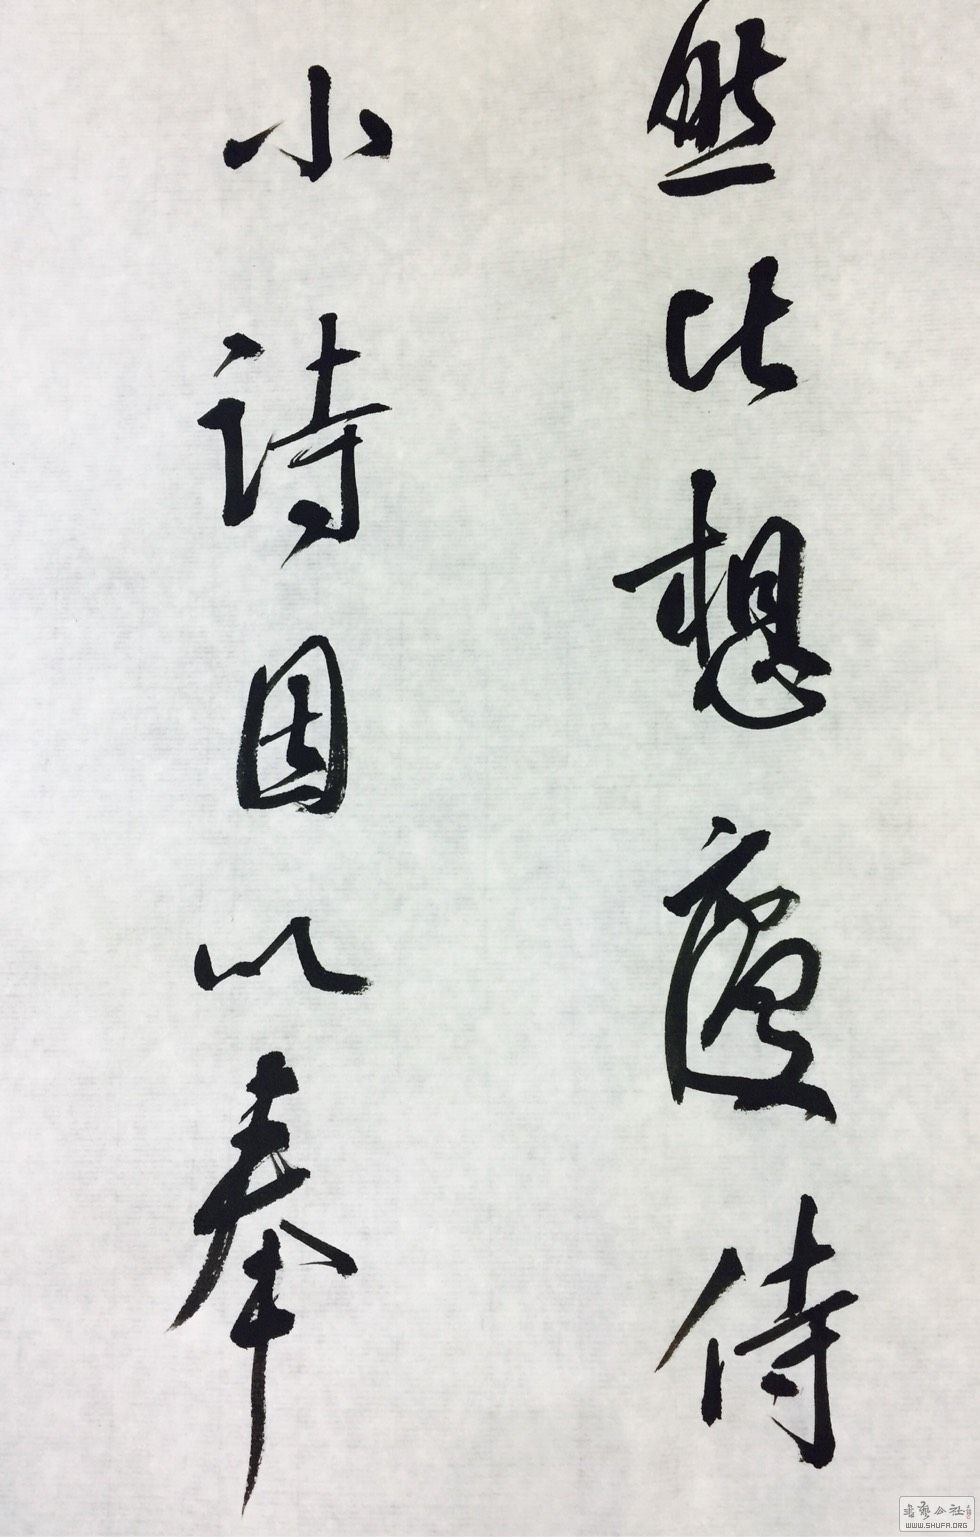 然比想慶侍
小詩因以奉
書藝公社
WWW.SHUFA.ORG